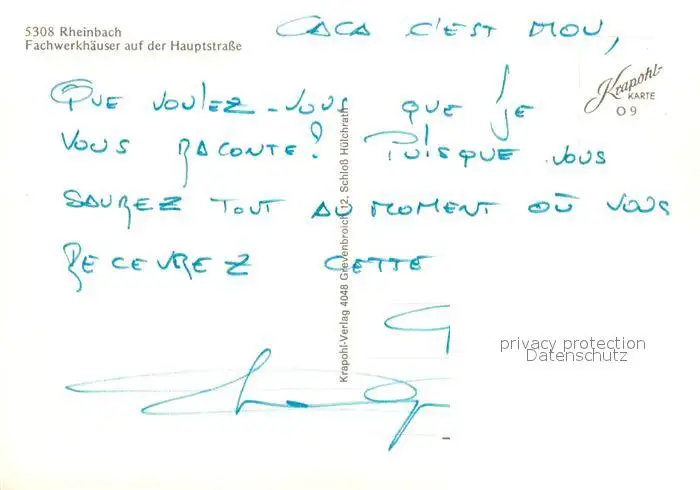 5308 Rheinbach
Fachwerkhäuser auf der Hauptstraße
CACA C'EST MOU,
Krapohl-
KARTE
09
QUE VOULEZ-VOUS QUE JE
VOUS RACONTE? PUISQUE VOUS
SAUREZ TOUT AU MOMENT OÙ VOUS
RECEVREZ CETTE
Krapohl-Verlag 4048 Grevenbroich 12, Schloß Hülchrath
privacy protection
Datenschutz